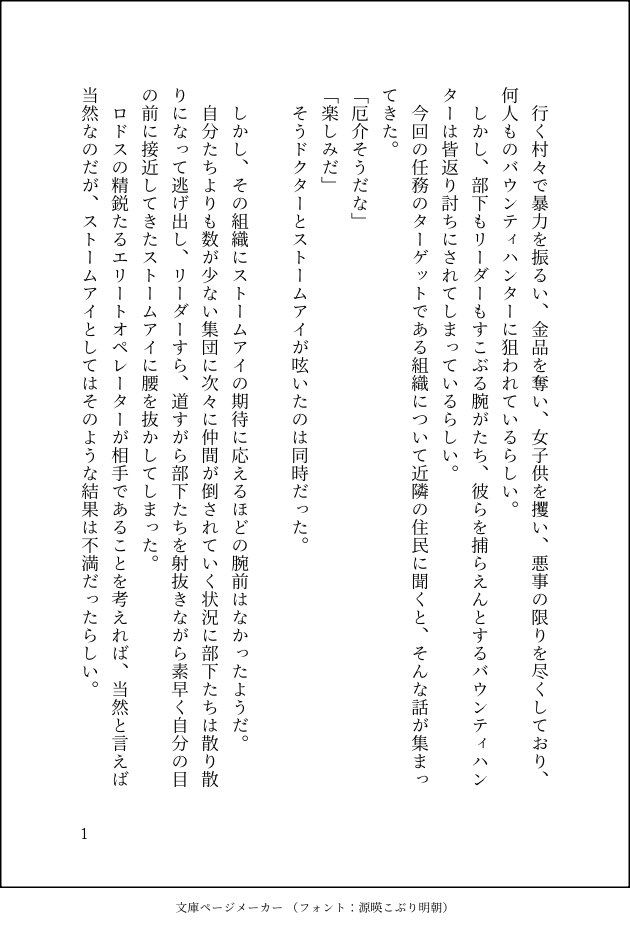 行く村々で暴力を振るい、金品を奪い、女子供を攫い、悪事の限りを尽くしており、
何人ものバウンティハンターに狙われているらしい。
しかし、部下もリーダーもすこぶる腕がたち、彼らを捕らえんとするバウンティハン
ターは皆返り討ちにされてしまっているらしい。
今回の任務のターゲットである組織について近隣の住民に聞くと、そんな話が集まっ
てきた。
「厄介そうだな」
「楽しみだ」
そうドクターとストームアイが呟いたのは同時だった。
しかし、その組織にストームアイの期待に応えるほどの腕前はなかったようだ。
自分たちよりも数が少ない集団に次々に仲間が倒されていく状況に部下たちは散り散
りになって逃げ出し、リーダーすら、道すがら部下たちを射抜きながら素早く自分の目
の前に接近してきたストームアイに腰を抜かしてしまった。
ロドスの精鋭たるエリートオペレーターが相手であることを考えれば、当然と言えば
当然なのだが、ストームアイとしてはそのような結果は不満だったらしい。
1
文庫ページメーカー（フォント：源暎こぶり明朝）